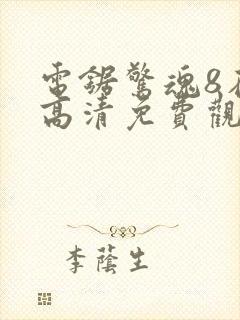 電鋸驚魂8在
高清免費觀
李蔭生